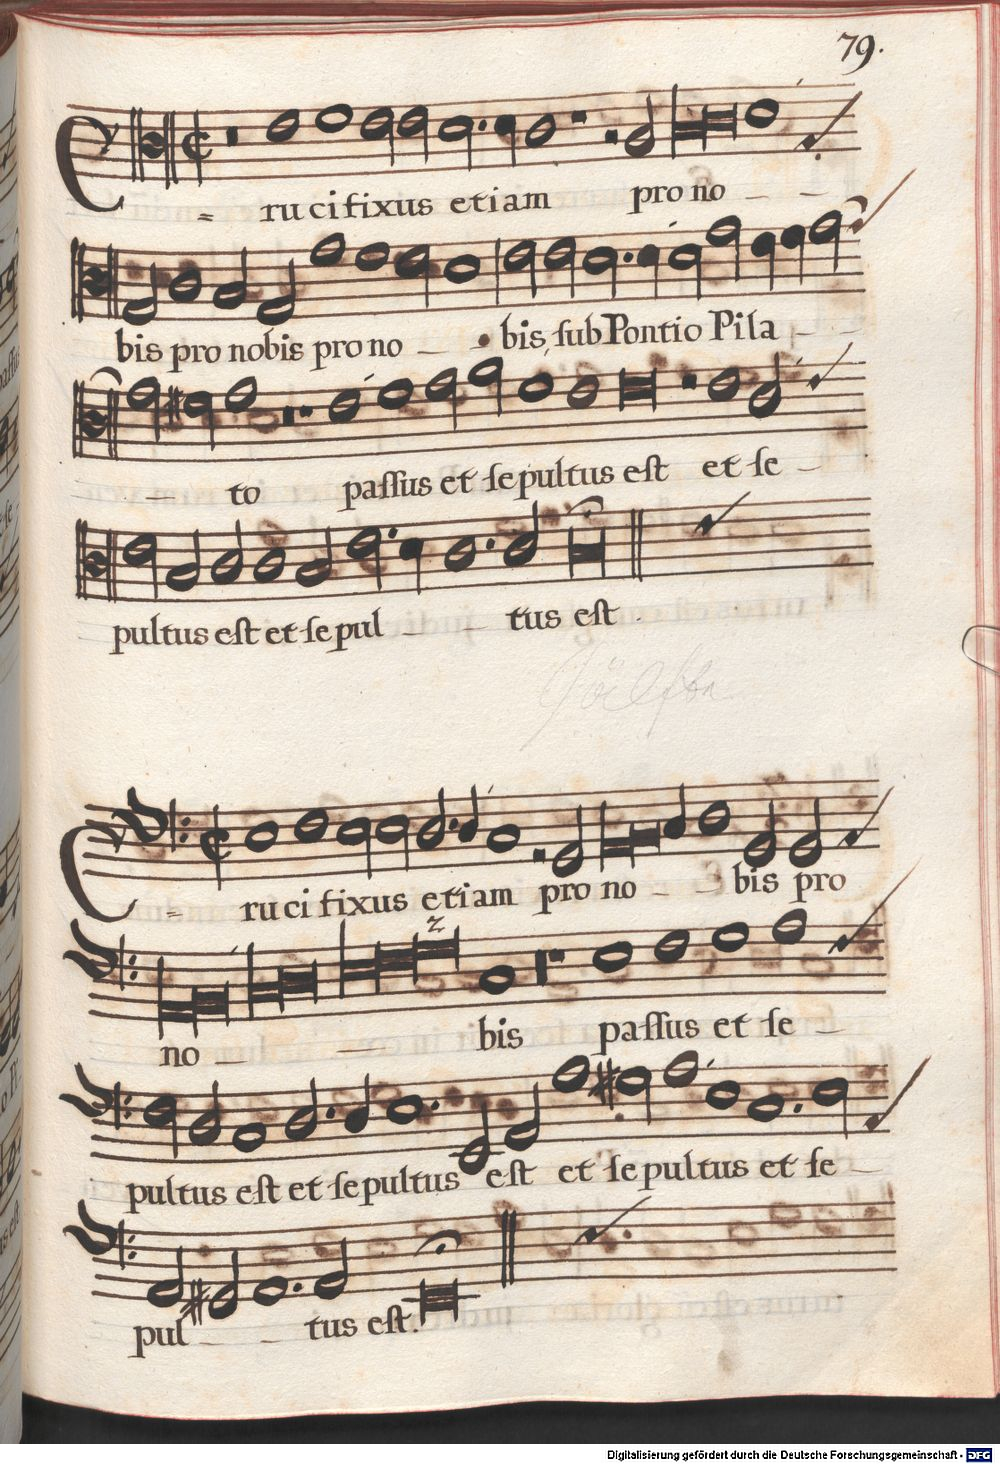 79.
C = rucifixus etiam pro no - -
bis pro nobis pro no - - bis sub Pontio Pila - -
- to passus et sepultus est et se -
pultus est et sepul - - tus est .
C = rucifixus etiam pro no - - bis pro
2
no - - bis passus et se -
pultus est et sepultus est et sepultus et se -
pul - - tus est.
Digitalisierung gefördert durch die Deutsche Forschungsgemeinschaft - DFG